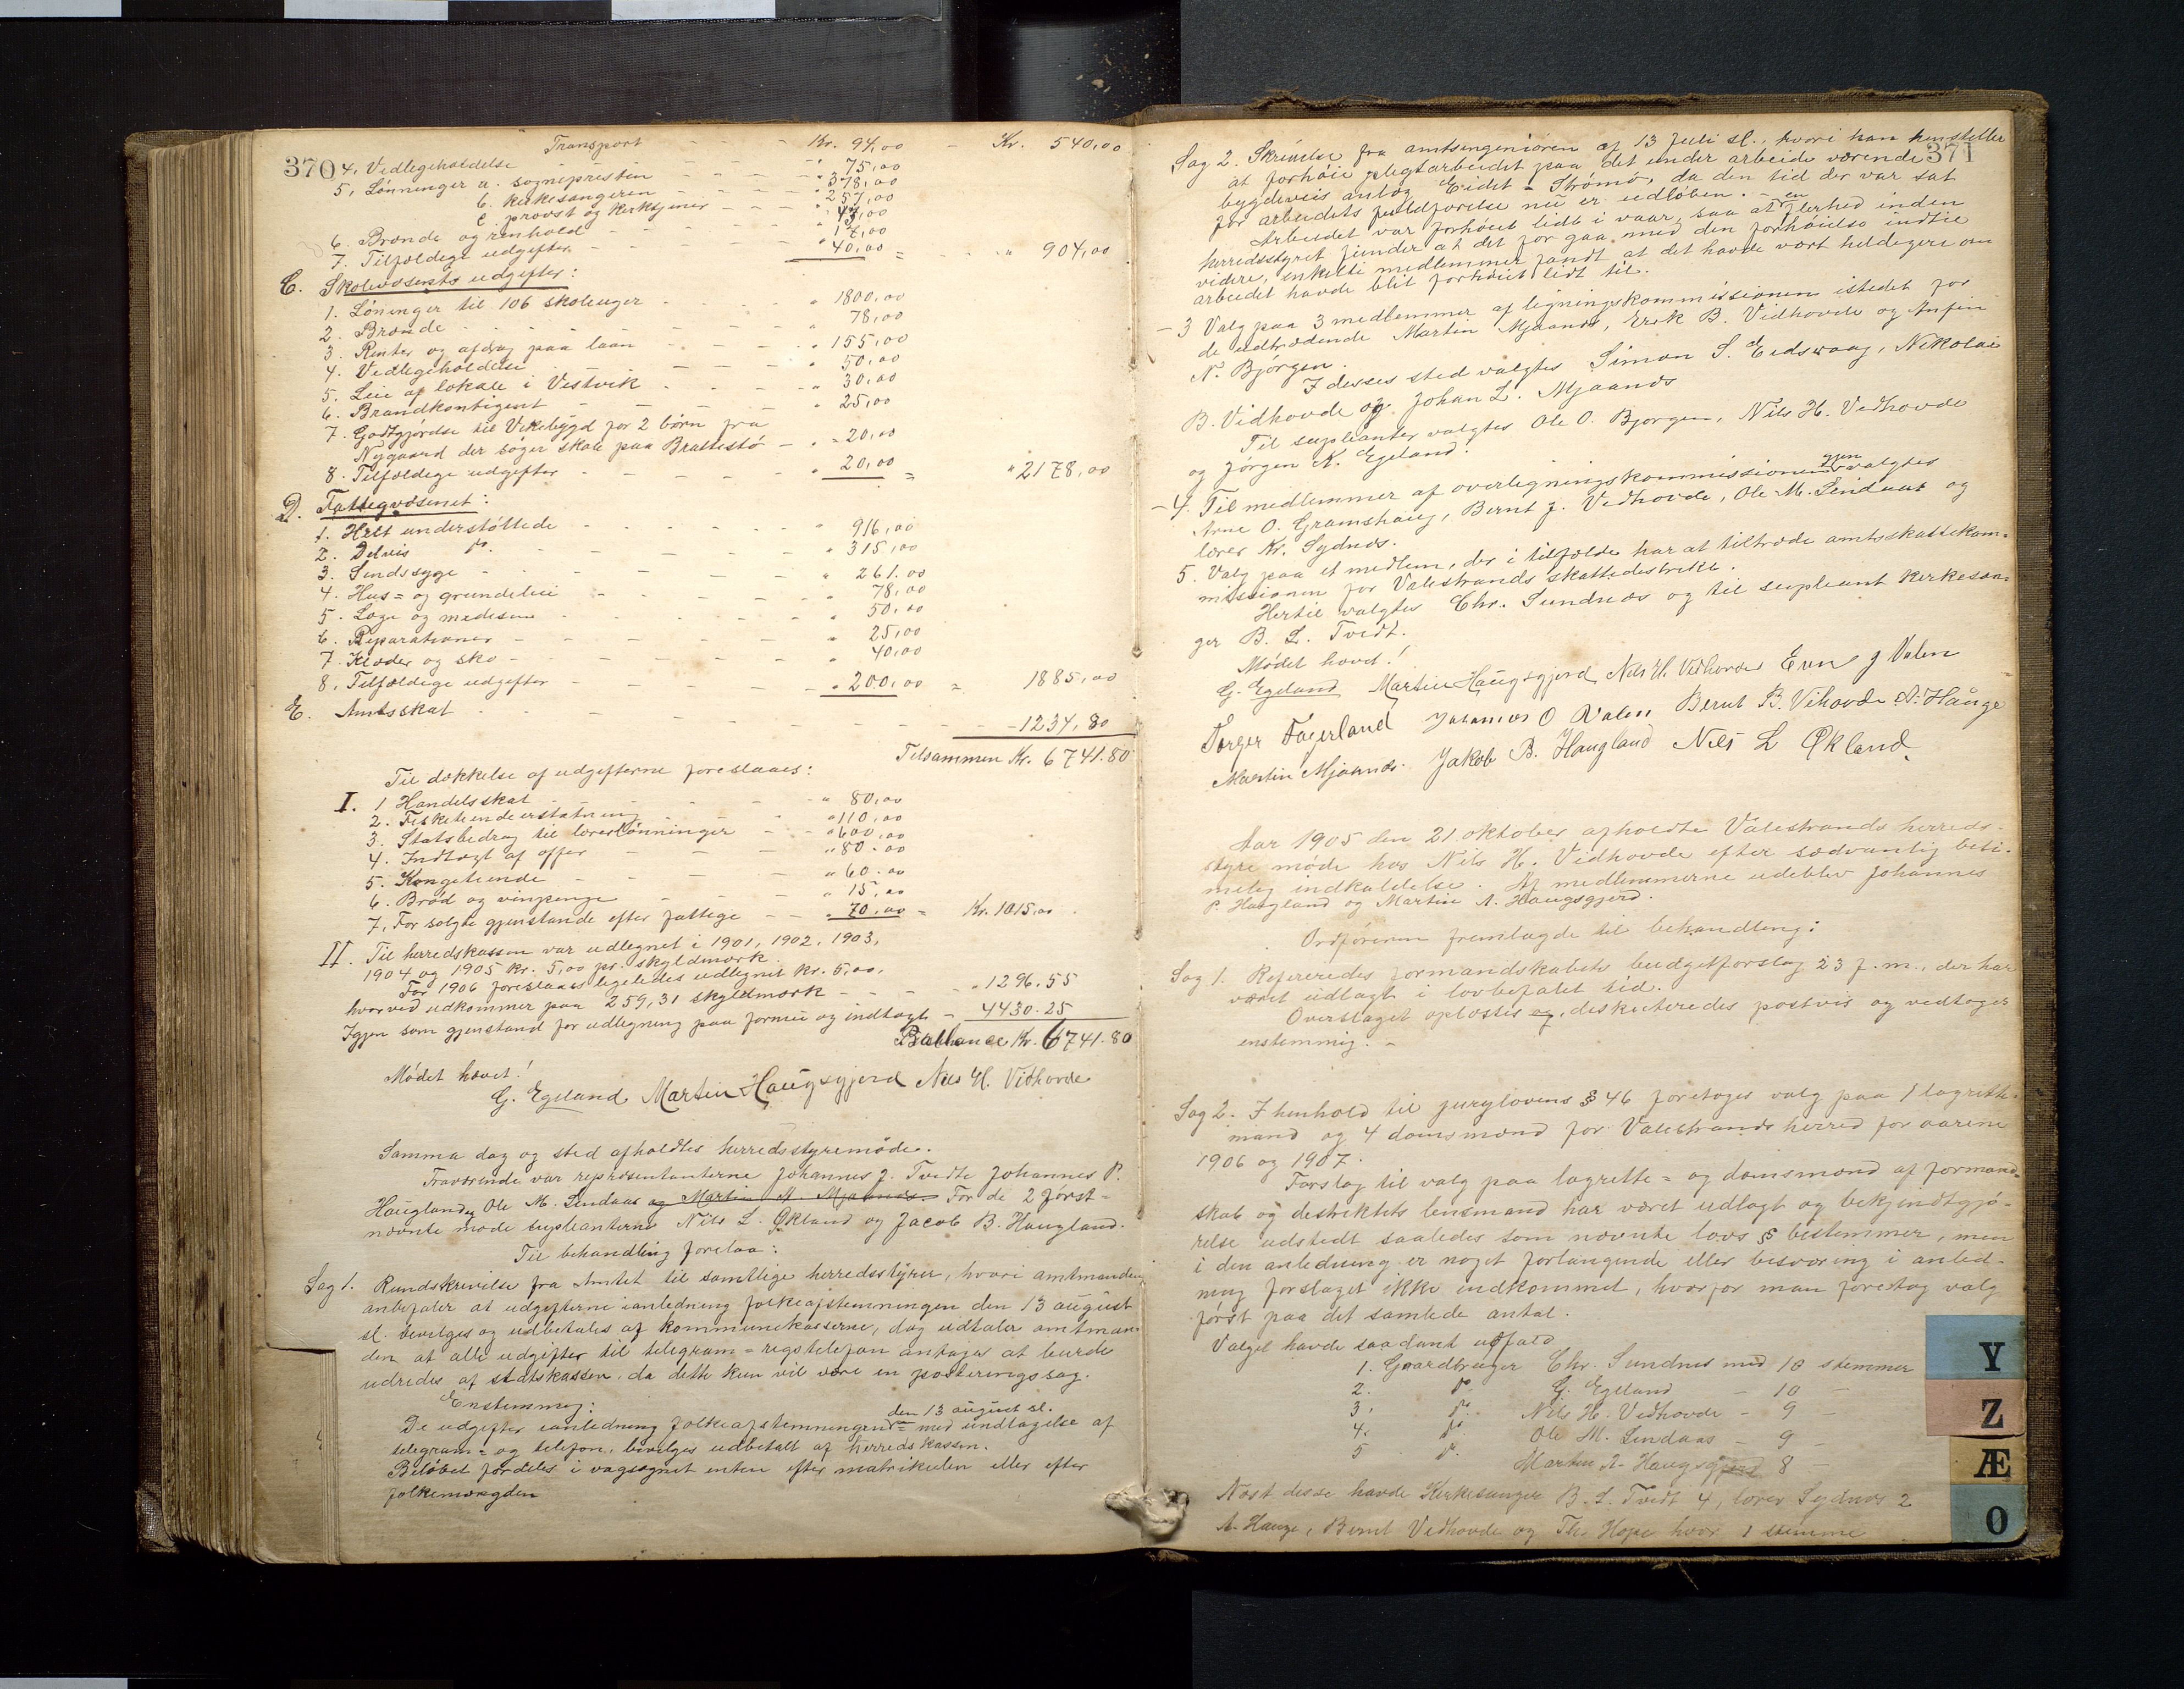 370
Transport - - - Kr. 94,00 - Kr. 540,00
4. Vedligeholdelse - - - " 75,00
5. Lønninger a. sognepresten - - - " 378,00
b. kirkesangeren - - - " 257,00
c. provst og kirketjener - - - " 43,00
6. Brænde og renhold - - - " 17,00
7. Tilfældige udgifter - - - " 40,00 = " 904,00
C. Skolevæsenets udgifter:
1. Løninger til 106 skoleuger - - - " 1800,00
2. Brænde - - - " 78,00
3. Renter og afdrag paa laan - - - " 155,00
4. Vedligeholdelse - - - " 50,00
5. Leie af lokale i Vestvik - - - " 30,00
6. Brandkontigent - - - " 25,00
7. Godtgjørelse til Vikebygd for 2 børn fra
Nygaard der søger skole paa Brattestø - " 20,00
8. Tilfældige udgifter - - - " 20,00 = " 2178,00
D. Fattigvæsenet:
1. Helt understøttede - - - " 916,00
2. Delvis do. - - - " 315,00
3. Sindssyge - - - " 261.00
4. Hus= og grundeleie - - - " 78,00
5. Læge og medesin - - - " 50,00
6. Reparationer - - - " 25,00
7. Klæder og sko - - - " 40,00
8. Tilfældige udgifter - - - " 200,00 = 1885,00
E. Amtsskat - - - 1234,80
Tilsammen Kr. 6741.80
Til dækkelse af udgifterne foreslaaes:
I. 1 Handelsskat - - - " 80,00
2. Fisketiendeerstatning - - - " 110,00
3. Statsbedrag til lærerlønninger - - " 600,00
4. Indtægt af offer - - - " 80.00
5. Kongetiende - - - " 60.00
6. Brød og vinpenge - - - " 15,00
7. For solgte gjenstande efter fattige - - " 70,00 = Kr. 1015,00
II. Til herredskassen var udlignet i 1901, 1902, 1903,
1904 og 1905 kr. 5,00 pr. skyldmark.
For 1906 foreslaaes ligeledes udlignet kr. 5,00,
hvorved udkommer paa 259,31 skyldmark - - - " 1296.55
Igjen som gjenstand for udlegning paa formue og indtægt - 4430.25
Ballance Kr. 6741.80
Mødet hævet!
G. Egeland Martin Haugsgjerd Nils H. Vidhovde
Samma dag og sted afholdtes herredsstyremøde.
Fraværende var repræsentanterne Johannes J. Tvedte Johannes P.
Haugland og Ole M. Lindaas og Martin A. Mjaanes. For de 2 først=
nævnte møde supleanterne Nils L. Økland og Jacob B. Haugland.
Til behandling forelaa:
Sag 1. Rundskrivelse fra Amtet til samtlige herredsstyrer, hvori amtmanden
anbefaler at udgifterne ianledning folkeafstemningen den 13 august
sl. bevilges og udbetales af kommunekasserne, dog udtaler amtman-
den at alle udgifter til telegram= rigstelefon antages at burde
udredes af statskassen, da dette kun vil være en posteringssag.
Enstemmig:
den 13 august sl.
De udgifter ianledning folkeafstemningen med undtagelse af
telegram= og telefon, bevilges udbetalt af herredskassen.
Beløbet fordeles i vagsognet enten efter matrikulen eller efter
folkemængden
371
Sag 2. Skrivelse fra amtsingeniøren af 13 juli sl., hvori han henstiller
at forhøie pligtarbeidet paa det under arbeide værende
bygdeveis anlæg Eidet - Strømø, da den tid der var sat
for arbeidets fuldførelse nu er udløben. -
Arbeidet var forhøiet lidt i vaar, saa at en flerhed inden
herredsstyret finder at det før gaa med den forhøielse indtil
videre, enkelte medlemmer fandt at det havde vært heldigere om
arbeidet havde blit forhøiet lidt til.
- 3 Valg paa 3 medlemmer af ligningskommissionen istedet for
de udtrædende Martin Mjaanes, Erik B. Vidhovde og Anfin
N. Bjørgen.
I desses sted valgtes Simon S. Eidsvaag, Nikolai
B. Vidhovde og Johan L. Mjaanes
Til supleanter valgtes Ole O. Bjørgen, Nils H. Vidhovde
og Jørgen K. Egeland.
- 4. Til medlemmer af overligningskommissionen gjenvalgtes
Arne O. Gramshaug, Bernt J. Vidhovde, Ole M. Lindaas og
lærer Kr. Sydnes.
5. Valg paa et medlem, der i tilfælde har at tiltræde amtsskattekom=
missionen for Valestrands skattedestrikt.
Hertil valgtes Chr. Sundnæs og til supleant kirkesan-
ger B. L. Tvedt.
Mødet hævet!
G. Egeland Martin Haugsgjerd Nils H. Vidhovde Even J Valen
Torger Fagerland Johannes O Valen Bernt B. Vihovde A. Hauge
Martin Mjaanes. Jakob B. Haugland Nils L Økland
Aar 1905 den 21 oktober afholdte Valestrands herreds-
styre møde hos Nils H. Vidhovde efter sædvanlig beti-
melig indkaldelse. Af medlemmerne udeblev Johannes
P. Haugland og Martin A. Haugsgjerd.
Ordføreren fremlagde til behandling:
Sag 1. Refereredes formandskabets budgetforslag 23 f. m., der har
været udlagt i lovbefalet tid.
Overslaget oplæstes og, deskuteredes postvis og vedtoges
enstemmig. -
Sag 2. I henhold til jurylovens § 46 foretoges valg paa 1 lagrette-
mand og 4 domsmænd for Valestrands herred for aarene
1906 og 1907.
Forslag til valg paa lagrette= og domsmænd af formand=
skab og destriktets lensmand har været udlagt og bekjendtgjø-
relse udstedt saaledes som nævnte lovs § bestemmer, men
i den anledning er noget forlangende eller besværing i anled-
ning forslaget ikke indkommet, hvorfor man foretog valg
først paa det samlede antal.
Valget havde saadant udfald
1. Gaardbruger Chr. Sundnes med 10 stemmer
2. do. G. Egeland - 10 -
3. do. Nils H. Vidhovde - 9 -
4. do. Ole M. Lindaas - 9 -
5 do. Martin A. Haugsgjerd 8 -
Næst desse havde Kirkesanger B. L. Tvedt 4, lærer Sydnes 2
A. Hauge, Bernt Vidhovde og Th. Hope hver 1 stemme
Y
Z
Æ
O